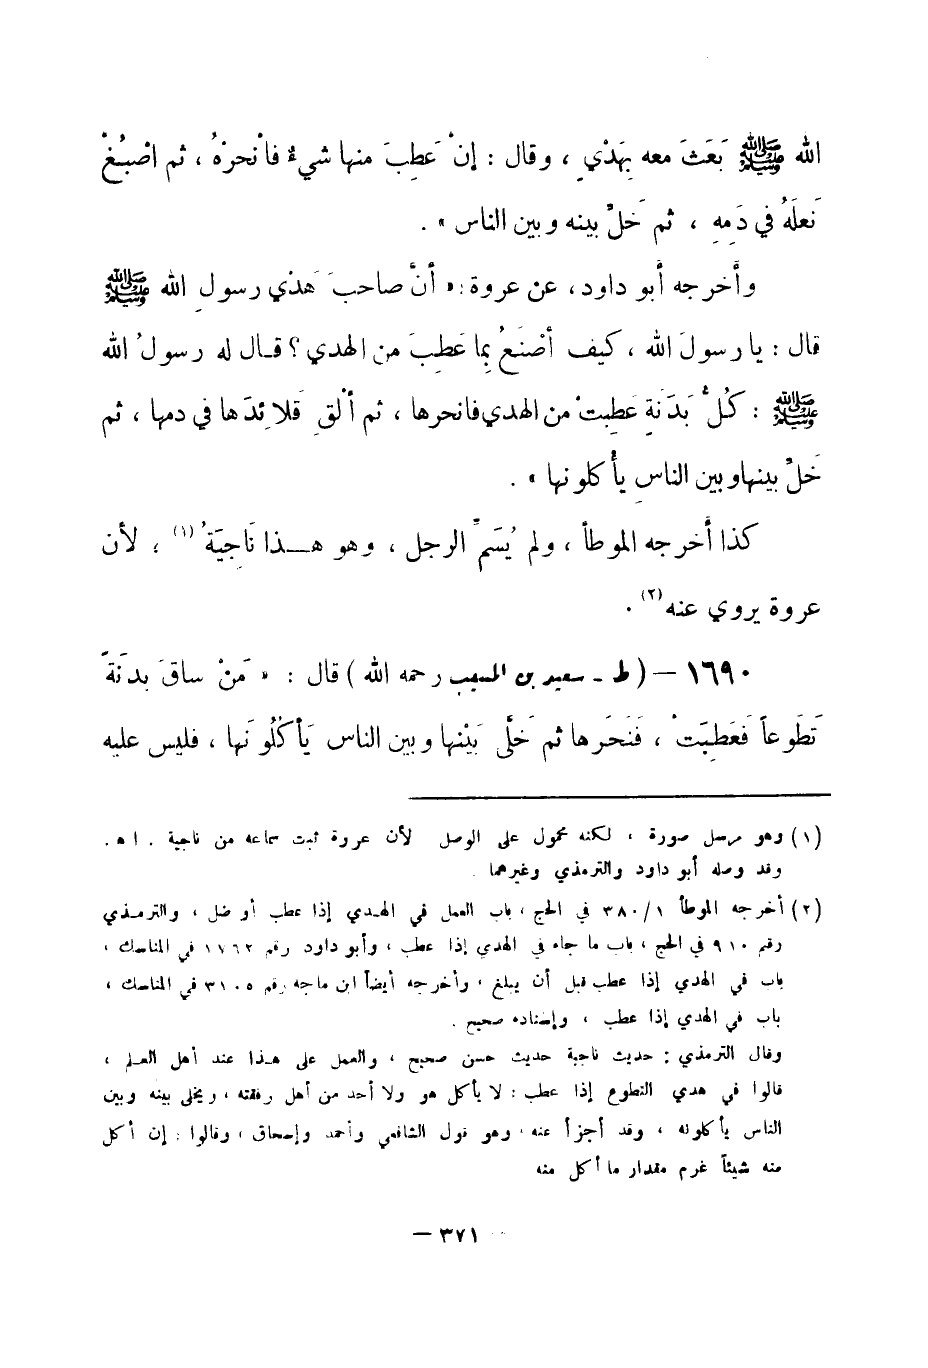 الله ﷺ بَعَثَ معه بِهَدْيٍ ، وقال : إنْ عَطِبَ منها شيءٌ فانْحرْهُ ، ثم اصْبُغْ
نَعلَهُ في دَمِهِ ، ثم خَلِّ بينه وبين الناس » .
وأخرجه أبو داود، عن عروة : « أنَّ صاحبَ هَدْي رسولِ الله ﷺ
قال : يا رسولَ الله ، كيف أصْنَعُ بِما عَطِبَ من الهدي ؟ قـال له رسولُ الله
ﷺ : كُلُّ بَدَنَةٍ عَطِبتْ من الهدي فانحرها ، ثم ألْقِ قَلائِدَها في دمها ، ثم
خَلِّ بينها وبين الناسِ يأكلونها » .
كذا أخرجه الموطأ ، ولم يُسَمِّ الرجل ، وهو هـــذا نَاجِيَةُ (١) ، لأن
عروة يروي عنه (٢) .
١٦٩٠ – ( ط ـ سعيد بن المسيب رحمه الله ) قال : « مَنْ ساقَ بدَنَةً
تَطَوعاً فَعَطِبَتْ ، فَنَحَرها ثم خَلَّى بَيْنها وبين الناس يَأكُلُونَها ، فليس عليه
(١) وهو مرسل صورة ، لكنه محمول على الوصل لأن عروة ثبت سماعه من ناجية . اه .
وقد وصله أبو داود والترمذي وغيرهما .
(٢) أخرجه الموطأ ٣٨٠/١ في الحج ، باب العمل في الهـدي إذا عطب أو ضل ، والترمـذي
رقم ٩١٠ في الحج ، باب ما جاء في الهدي إذا عطب ، وأبو داود رقم ١٧٦٢ في المناسك ،
باب في الهدي إذا عطب قبل أن يبلغ ، وأخرجه أيضاً ابن ماجه رقم ٣١٠٥ في المناسك ،
باب في الهدي إذا عطب ، وإسناده صحيح .
وقال الترمذي : حديث ناجية حديث حسن صحيح ، والعمل على هـذا عند أهل العـلم ،
قالوا في هدي التطوع إذا عطب : لا يأكل هو ولا أحد من أهل رفقته ، ويخلى بينه وبين
الناس يأكلونه ، وقد أجزأ عنه ، وهو قول الشافعي وأحمد وإسحاق ، وقالوا : إن أكل
منه شيئاً غرم مقدار ما أكل منه
– ٣٧١ –